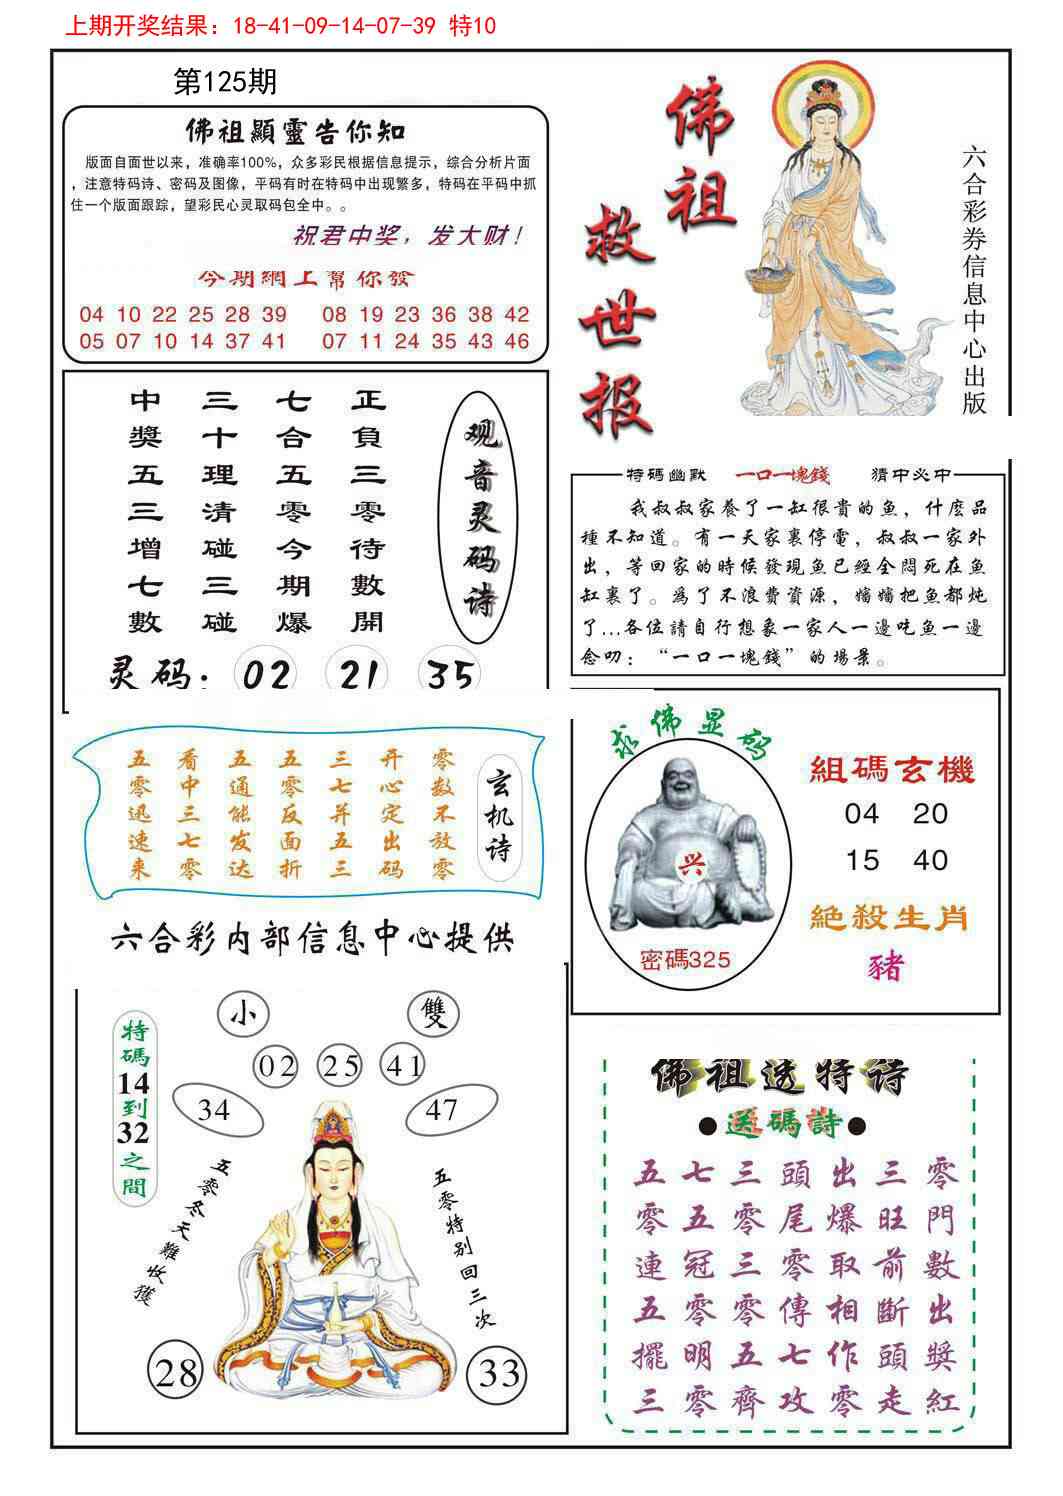 上期开奖结果：18-41-09-14-07-39 特10
第125期
佛祖顯靈告你知
版面自面世以来，准确率100%，众多彩民根据信息提示，综合分析片面
，注意特码诗、密码及图像，平码有时在特码中出现繁多，特码在平码中抓
住一个版面跟踪，望彩民心灵取码包全中。。
祝君中奖，发大财！
今期網上幫你發
04 10 22 25 28 39 08 19 23 36 38 42
05 07 10 14 37 41 07 11 24 35 43 46
佛祖
救世报
六合彩券信息中心出版
观音灵码诗
正負三零待數開
七合五零今期爆
三十理清碰三碰
中獎五三增七數
灵码：02 21 35
特碼幽默 一口一塊錢 猜中必中
我叔叔家養了一缸很貴的魚，什麼品
種不知道。有一天家裏停電，叔叔一家外
出，等回家的時候發現魚已經全悶死在魚
缸裏了。為了不浪費資源，嬸嬸把魚都炖
了...各位請自行想象一家人一邊吃魚一邊
念叨：“一口一塊錢”的場景。
玄机诗
零数不放零
开心定出码
三七并五三
五零反面折
五通能发达
看中三七零
五零迅速来
六合彩内部信息中心提供
求佛显码
兴
密碼325
組碼玄機
04 20
15 40
絕殺生肖
豬
小 雙
02 25 41
34 47
特碼14到32之間
五零冬天難收獲
五零特别回三次
28 33
佛祖透特诗
●送碼詩●
零門數出獎紅
三旺前斷頭走
出爆取相作零
頭尾零傳七攻
三零三零五齊
七五冠零明零
五零連五擺三